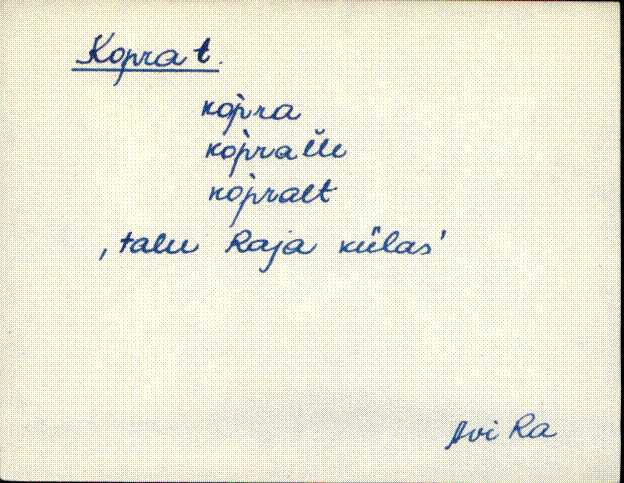 Kopra t.
kòpra
kòpralle
kòpralt
‚talu Raja külas’
Avi Ra